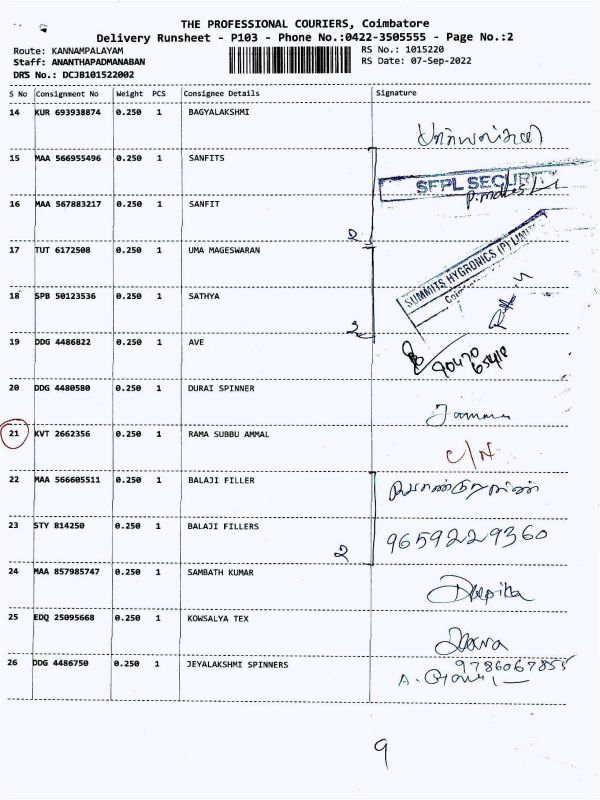 THE PROFESSIONAL COURIERS, Coimbatore
Delivery Runsheet - P103 - Phone No.:0422-3505555 - Page No.:2
Route: KANNAMPALAYAM RS No.: 1015220
Staff: ANANTHAPADMANABAN RS Date: 07-Sep-2022
DRS No.: DCJB101522002
S No Consignment No Weight PCS Consignee Details Signature
14 KUR 693938874 0.250 1 BAGYALAKSHMI
15 MAA 566955496 0.250 1 SANFITS
SFPL SECURITY
16 MAA 567883217 0.250 1 SANFIT
2
17 TUT 6172508 0.250 1 UMA MAGESWARAN
SUMMITS HYGRONICS (P) LIMITED
18 SPB 50123536 0.250 1 SATHYA
2
19 DDG 4486822 0.250 1 AVE
90470
65418
20 DDG 4480580 0.250 1 DURAI SPINNER
21 KVT 2662356 0.250 1 RAMA SUBBU AMMAL
C/N
22 MAA 566605511 0.250 1 BALAJI FILLER
23 STY 814250 0.250 1 BALAJI FILLERS
2 9659229360
24 MAA 857985747 0.250 1 SAMBATH KUMAR
Deepika
25 EDQ 25095668 0.250 1 KOWSALYA TEX
26 DDG 4486750 0.250 1 JEYALAKSHMI SPINNERS
9786067855
9